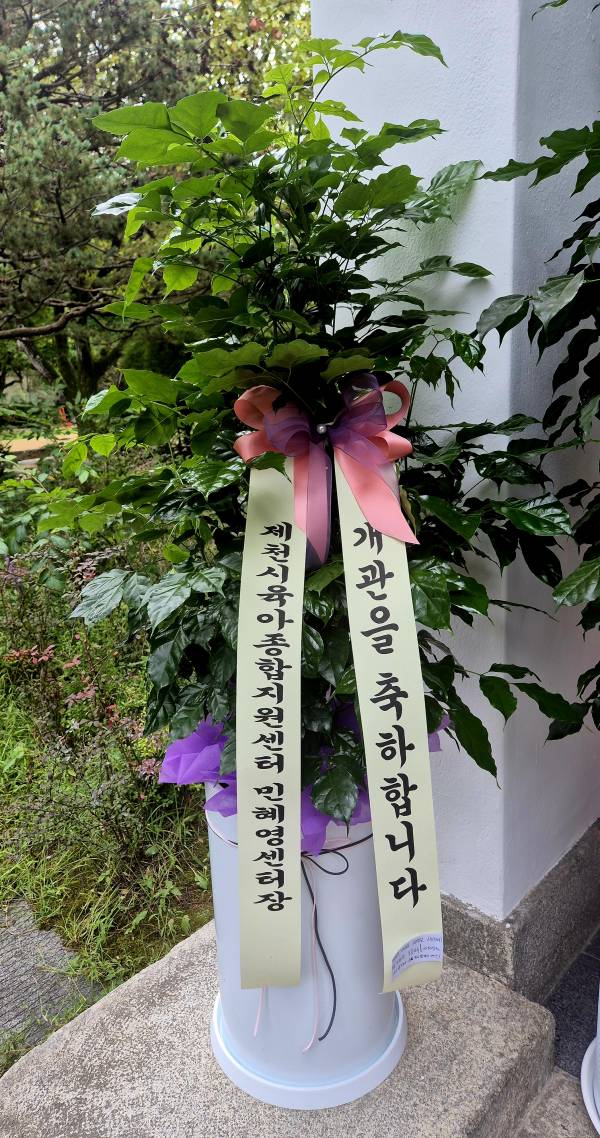 개관을 축하합니다
제천시육아종합지원센터 민혜영센터장